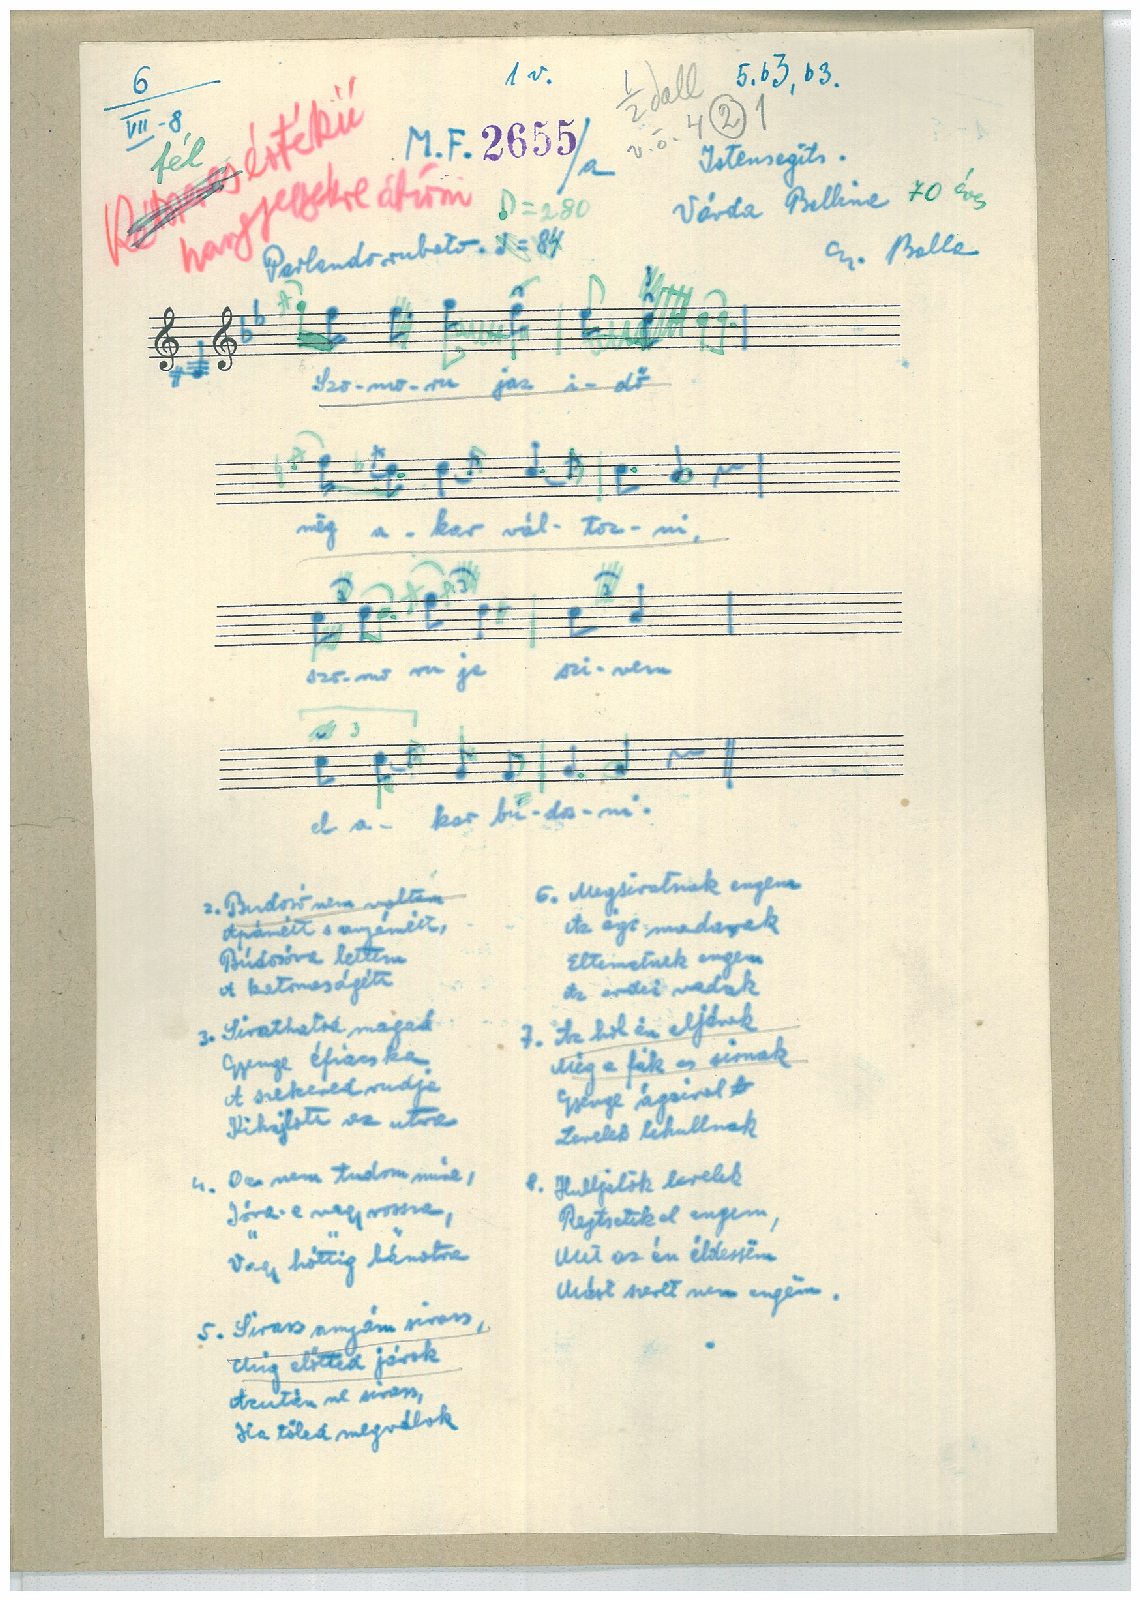 6
VII-8
1 v.
1/2 dall
5. b3, b3.
v.ö. 4 2 1
fél
értékű
hangjegyekre átírni
M.F. 2655/a
Istensegíts.
♪ = 280
Várda Belline 70 éves
Parlando rubato. ♩ = 84
Gy. Balla
Szo-mo-ru jaz i-dő
még a-kar vál-toz-ni,
szo-mo ru ja szi-vem
el a- kar bú-dos-ni.
2. Budosó nem voltam
Apáméit s anyáméit,
Búdosóva lettem
A katonaságéti
3. Sirathatod magad
Gyenge éfiacska
A szekered rudja
Kihajlott az utra
4. De nem tudom mire,
Jóra-e vagy rossra,
Vagy hóttig bánatra
5. Sirass anyám sirass,
Mig előtted járok
Azután ne sirass,
Ha tőled megválok
6. Megsiratnak engem
Az égi madarak
Eltemetnek engem
Az erdei vadak
7. Az hol én eljárok
Még a fák es sirnak
Gyenge ágairol
Levelek lehullnak
8. Hulljatok levelek
Rejtsetek el engem,
Mer az én édessëm
Mást szeret nem engëm.